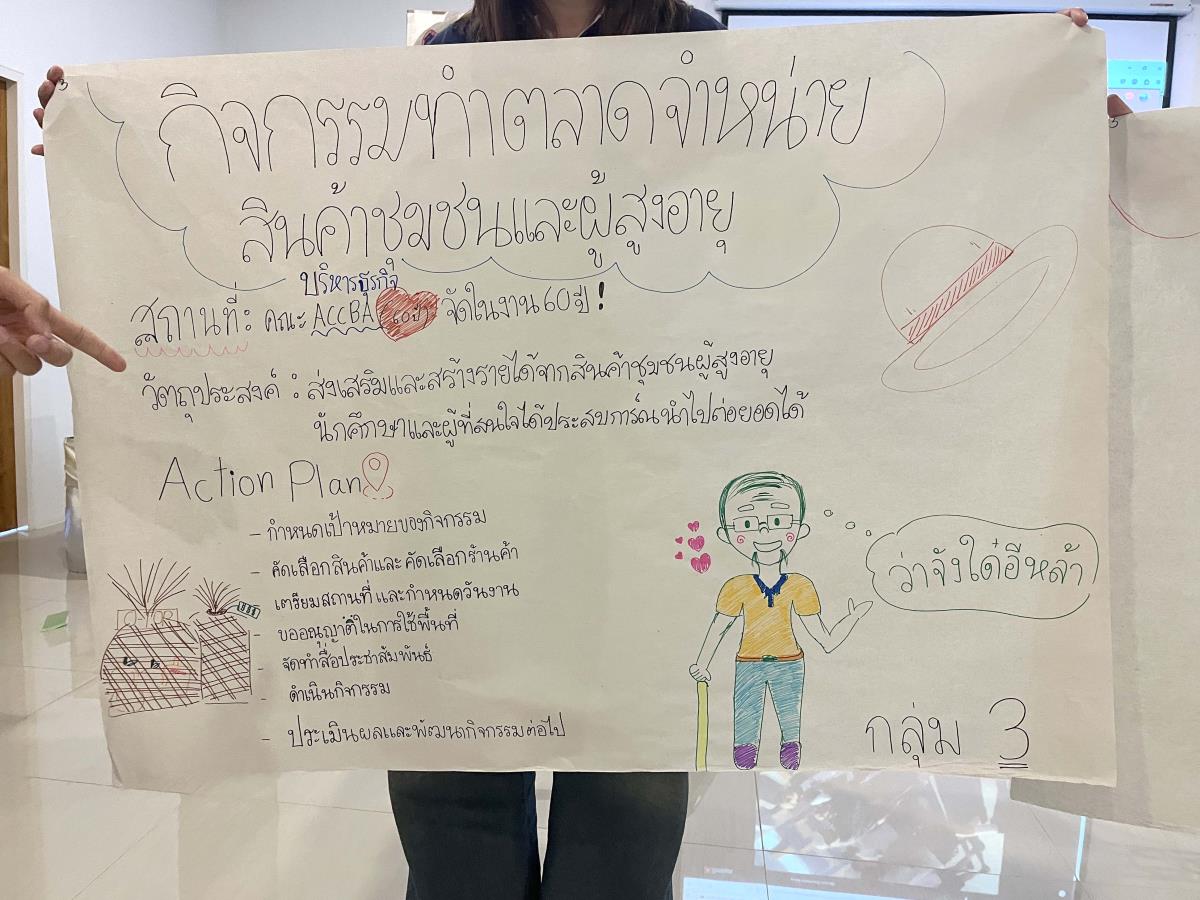 กิจกรรมทำตลาดจำหน่าย
สินค้าชุมชนและผู้สูงอายุ
บริหารธุรกิจ
สถานที่: คณะ ACCBA (60ปี) จัดในงาน 60 ปี !
วัตถุประสงค์ : ส่งเสริมและสร้างรายได้จากสินค้าชุมชนผู้สูงอายุ
นักศึกษาและผู้ที่สนใจได้ประสบการ์ณนำไปต่อยอดได้
Action Plan
- กำหนดเป้าหมายของกิจกรรม
- คัดเลือกสินค้าและคัดเลือกร้านค้า
เตรียมสถานที่ และกำหนดวันงาน
- ขออนุญาติในการใช้พื้นที่
- จัดทำสื่อประชาสัมพันธ์
- ดำเนินกิจกรรม
- ประเมินผลและพัฒนากิจกรรมต่อไป
ว่าจังใด๋อีหล้า
กลุ่ม 3